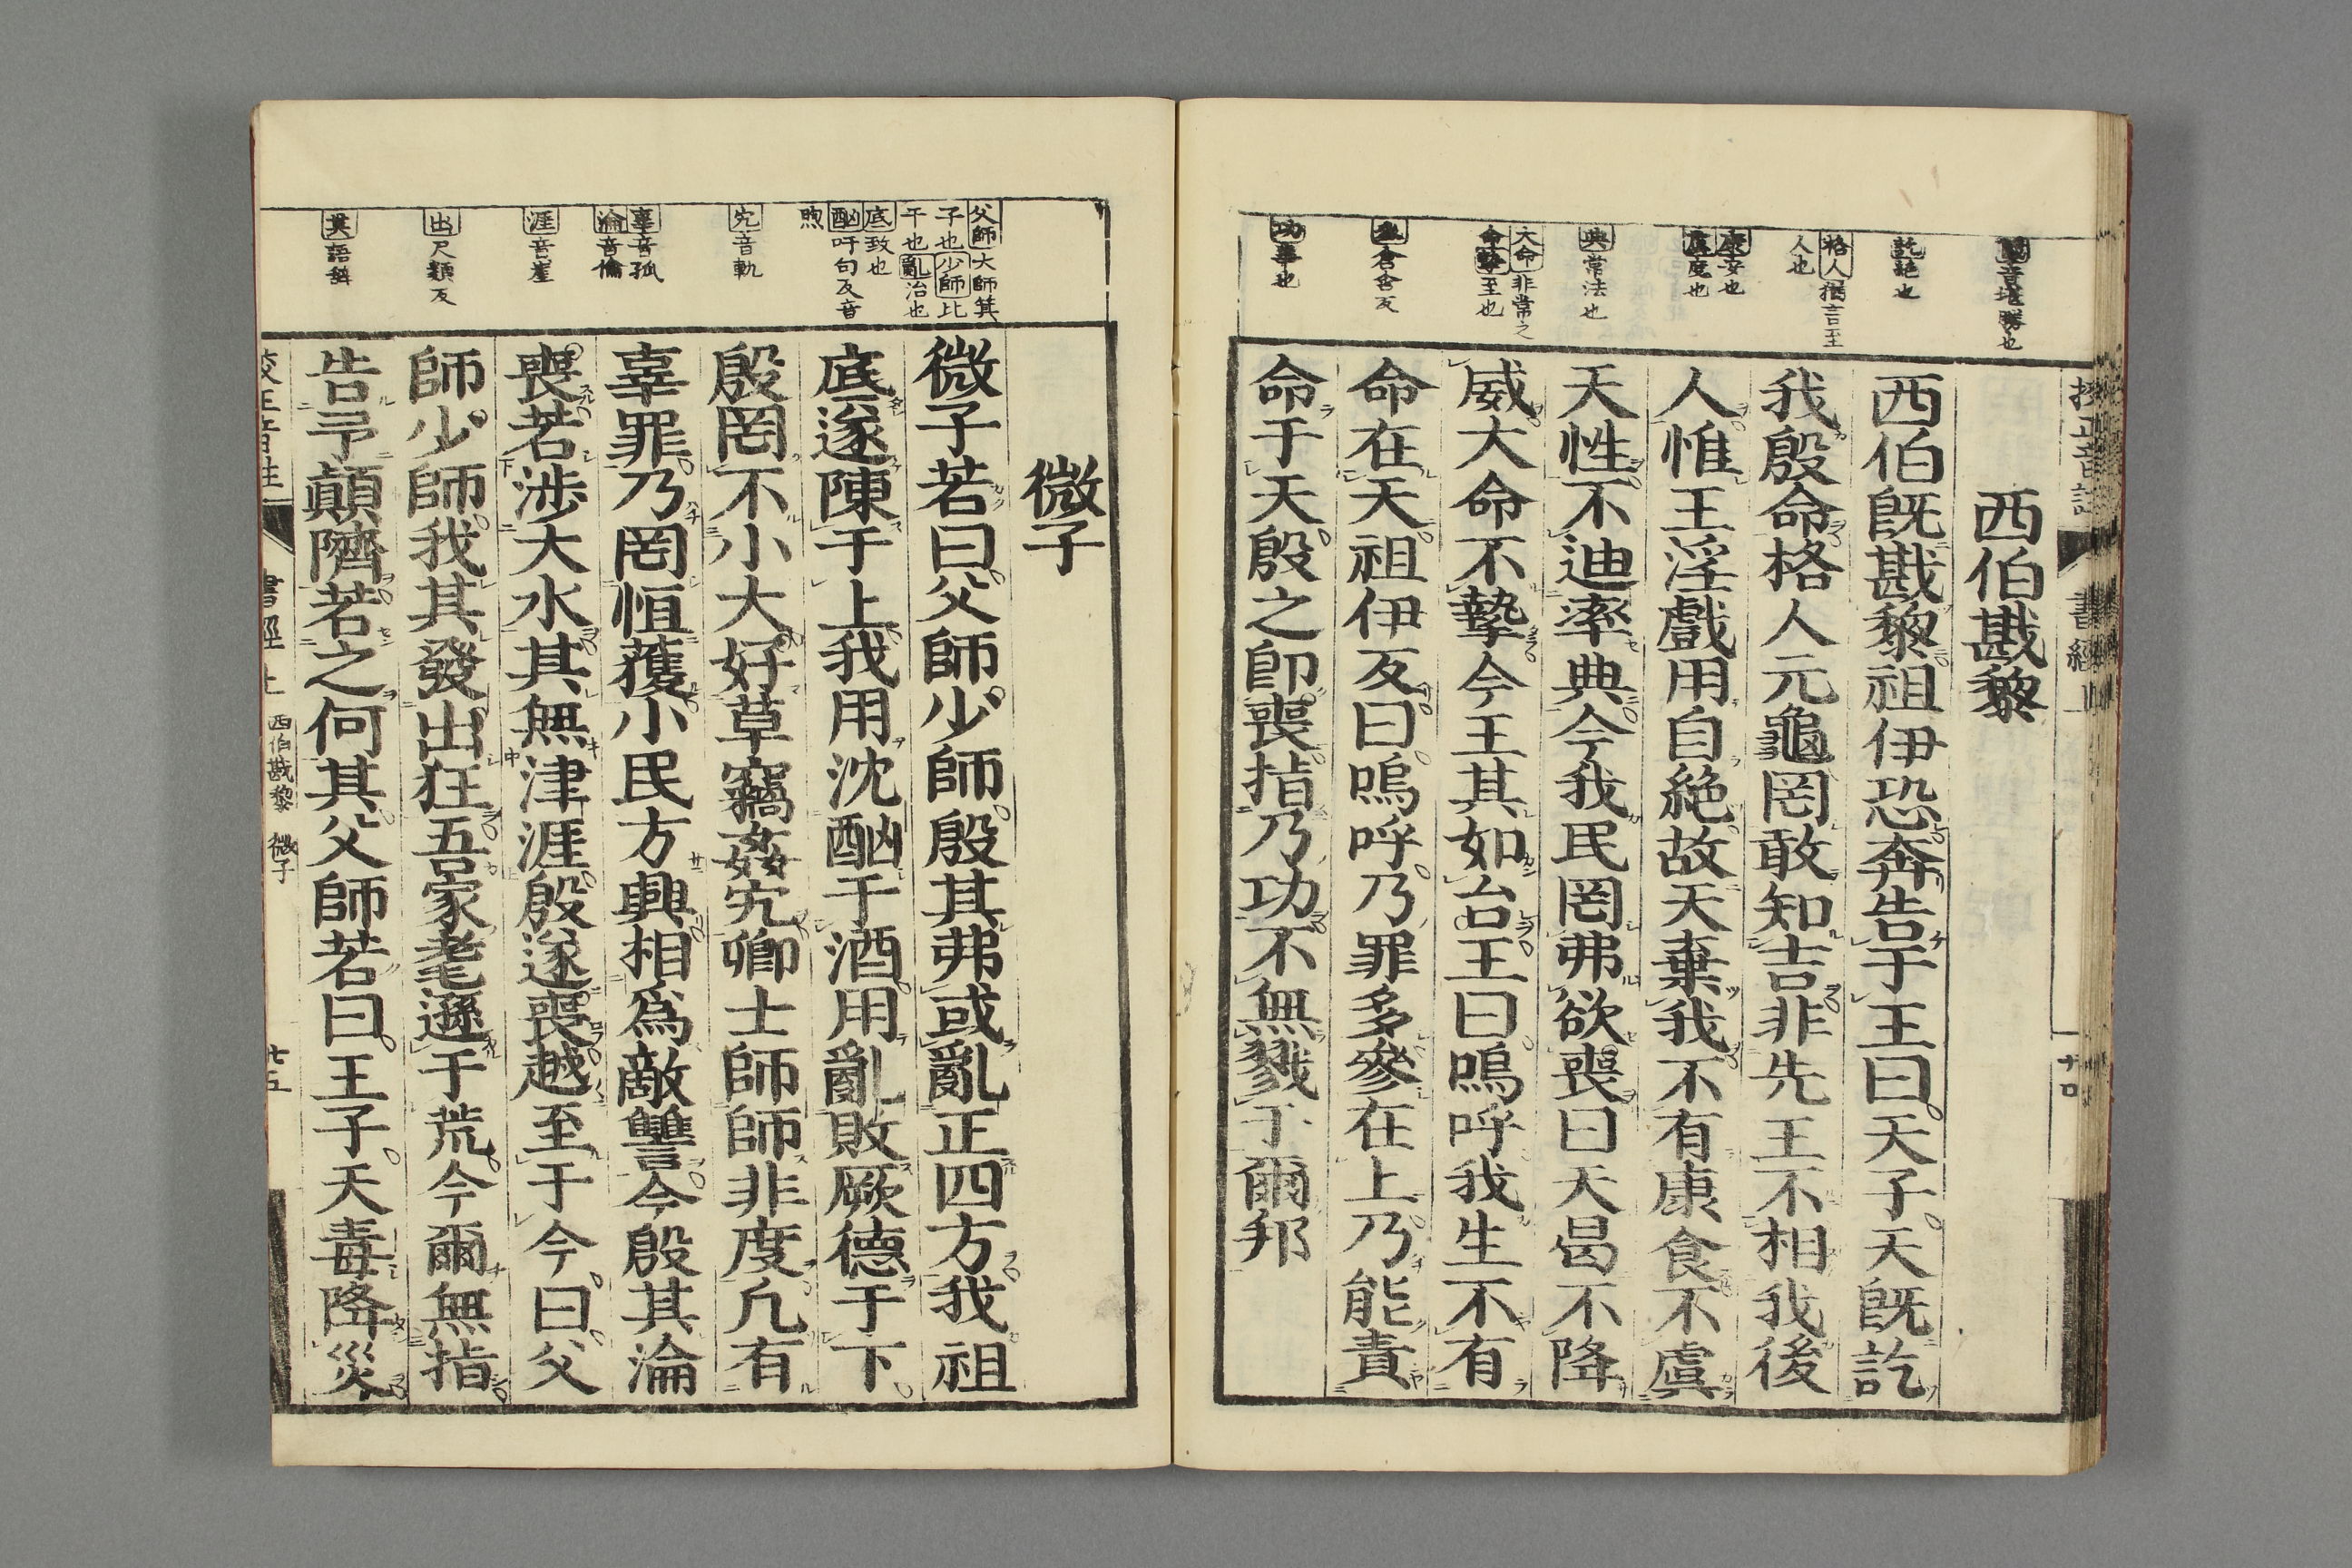 西伯戡黎
西伯既戡黎祖伊恐奔告于王曰天子天既訖
我殷命格人元龜罔敢知吉非先王不相我後
人惟王淫戲用自絶故天棄我不有康食不虞
天性不迪率典今我民罔弗欲喪曰天曷不降
威大命不摯今王其如台王曰嗚呼我生不有
命在天祖伊反曰嗚呼乃罪多參在上乃能責
命于天殷之即喪指乃功不無戮于爾邦
音堪勝也
訖絶也
格人猶言至
人也
康安也
虞度也
典常法也
大命非常之
命摯至也
參倉含反
功事也
書經
微子
微子若曰父師少師殷其弗或亂正四方我祖
底遂陳于上我用沈酗于酒用亂敗厥德于下
殷罔不小大好草竊姦宄卿士師師非度凡有
辜罪乃罔恒獲小民方興相爲敵讐今殷其淪
喪若涉大水其無津涯殷遂喪越至于今曰父
師少師我其發出狂吾家耄遜于荒今爾無指
告予顚隮若之何其父師若曰王子天毒降災
父師大師箕
子也少師比
干也亂治也
底致也
酗吁句反音
煦
宄音軌
辜音孤
淪音倫
涯音崖
出尺類反
其語辭
校正音註 書經上 西伯戡黎 微子 七五